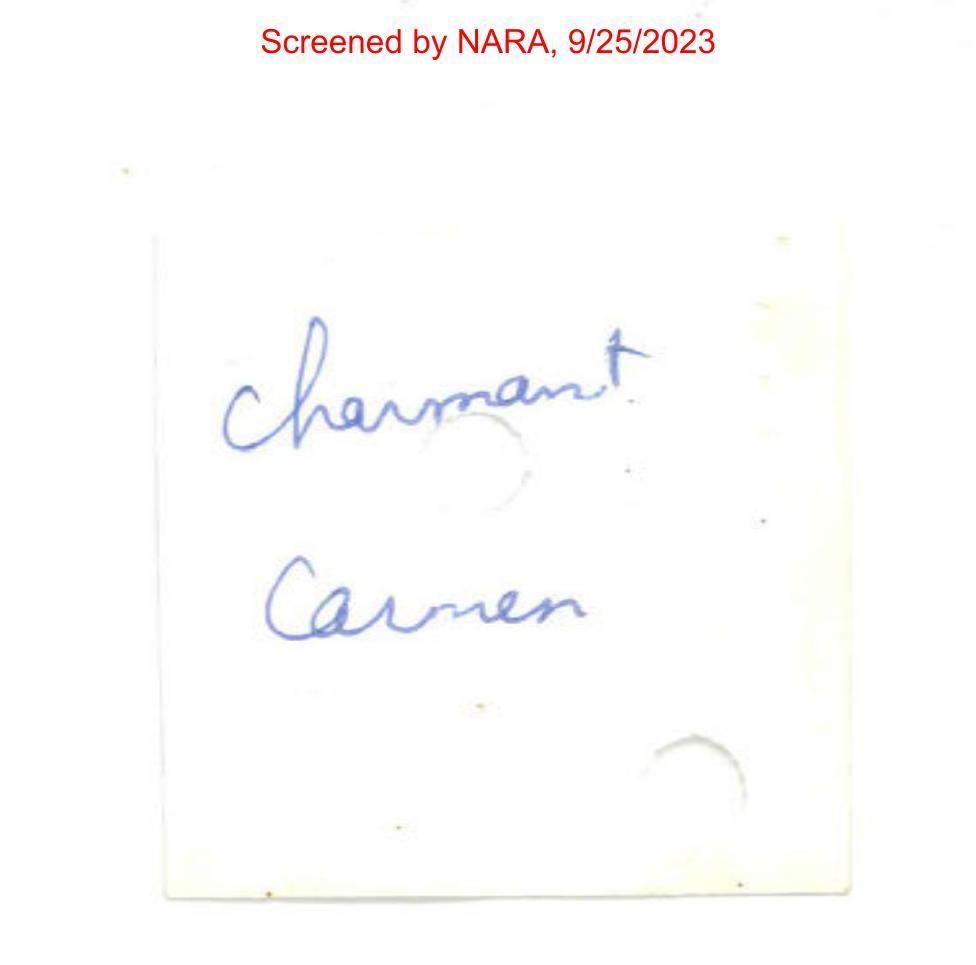 Screened by NARA, 9/25/2023
Charmant
Carmen